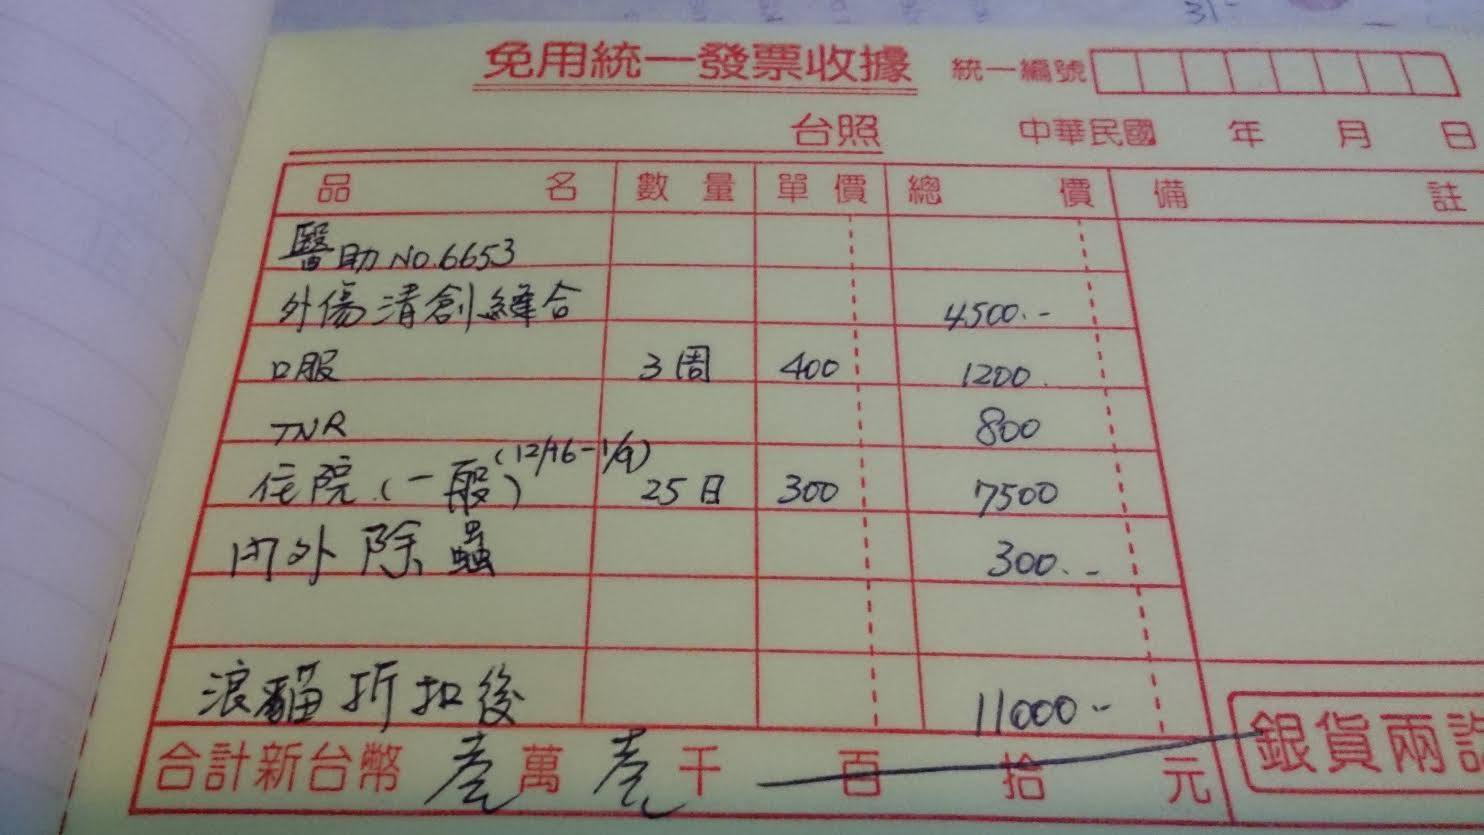 31-
免用統一發票收據 統一編號
台照 中華民國 年 月 日
品名 數量 單價 總價 備註
醫助 NO.6653
外傷清創縫合 4500.-
口服 3周 400 1200.
TNR 800
住院(一般) (12/16-1/9) 25日 300 7500
內外除蟲 300.-
浪貓折扣後 11000-
合計新台幣 壹萬壹千 百 拾 元 銀貨兩訖